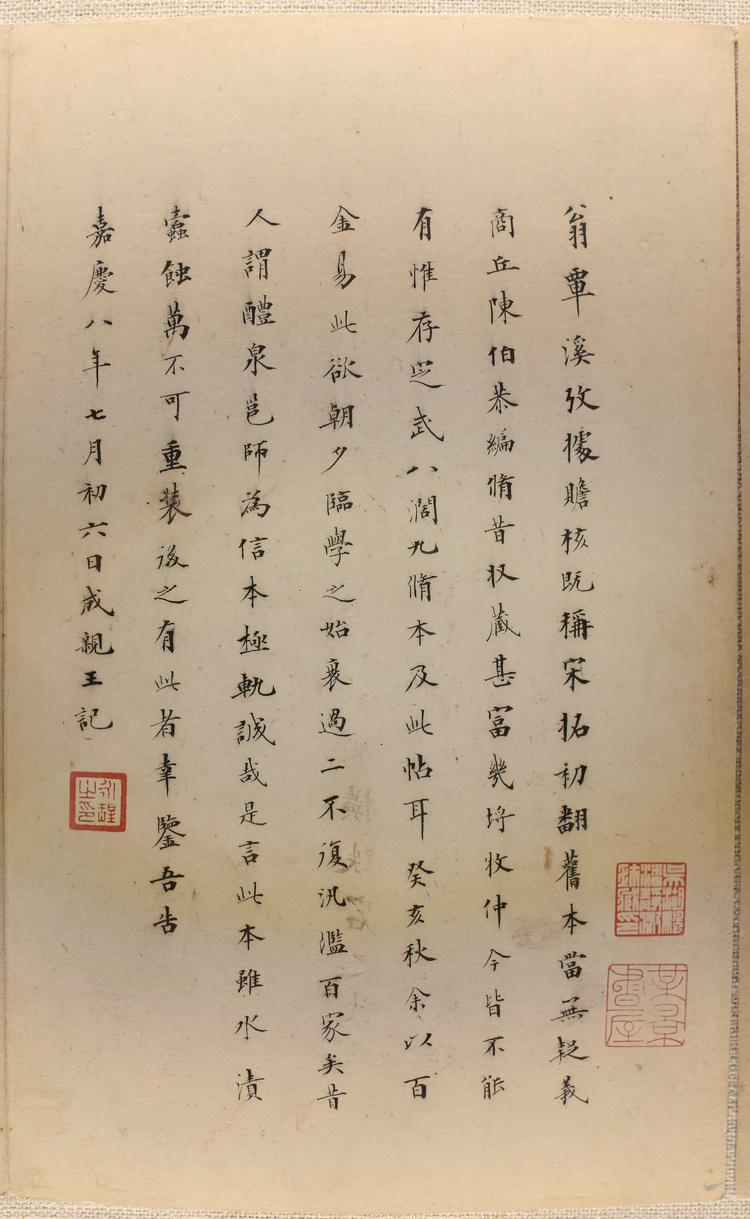 翁覃溪攷據贍核既稱宋拓初翻舊本當無疑義
商丘陳伯恭編脩昔收藏甚富幾埒牧仲今皆不能
有惟存㝎武八闊九脩本及此帖耳癸亥秋余以百
金易此欲朝夕臨學之始衰過二不復汎濫百家矣昔
人謂醴泉邕師為信本極軌誠哉是言此本雖水漬
蠹蝕萬不可重裝後之有此者幸鑒吾告
嘉慶八年七月初六日成親王記
永瑆之印